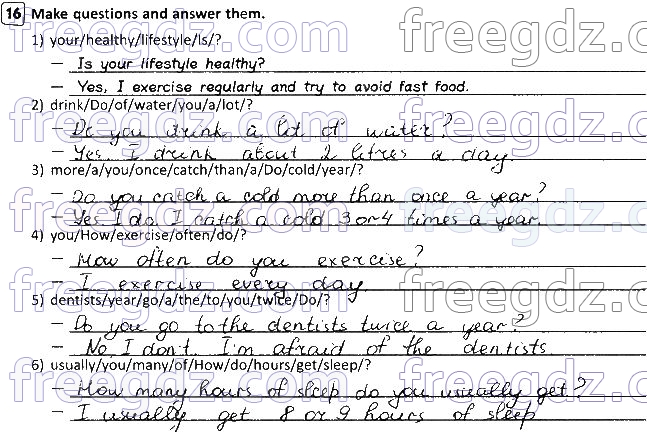 freegdz.com freegdz.com
16 Make questions and answer them.
1) your/healthy/lifestyle/Is/?
– Is your lifestyle healthy?
– Yes, I exercise regularly and try to avoid fast food.
freegdz.com freegdz.com
2) drink/Do/of/water/you/a/lot/?
– Do you drink a lot of water?
– Yes. I drink about 2 litres a day.
3) more/a/you/once/catch/than/a/Do/cold/year/?
– Do you catch a cold more than once a year?
– Yes I do. I catch a cold 3 or 4 times a year.
freegdz.com freegdz.com
4) you/How/exercise/often/do/?
– How often do you exercise?
– I exercise every day.
freegdz.com freegdz.com
5) dentists/year/go/a/the/to/you/twice/Do/?
– Do you go to the dentists twice a year?
– No, I don't. I'm afraid of the dentists
6) usually/you/many/of/How/do/hours/get/sleep/?
freegdz.com freegdz.com
– How many hours of sleep do you usually get?
– I usually get 8 or 9 hours of sleep